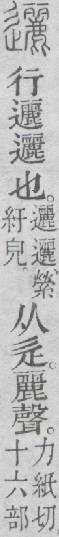 邐行邐邐也。邐邐、縈紆皃。从辵。麗聲。力紙切。十六部